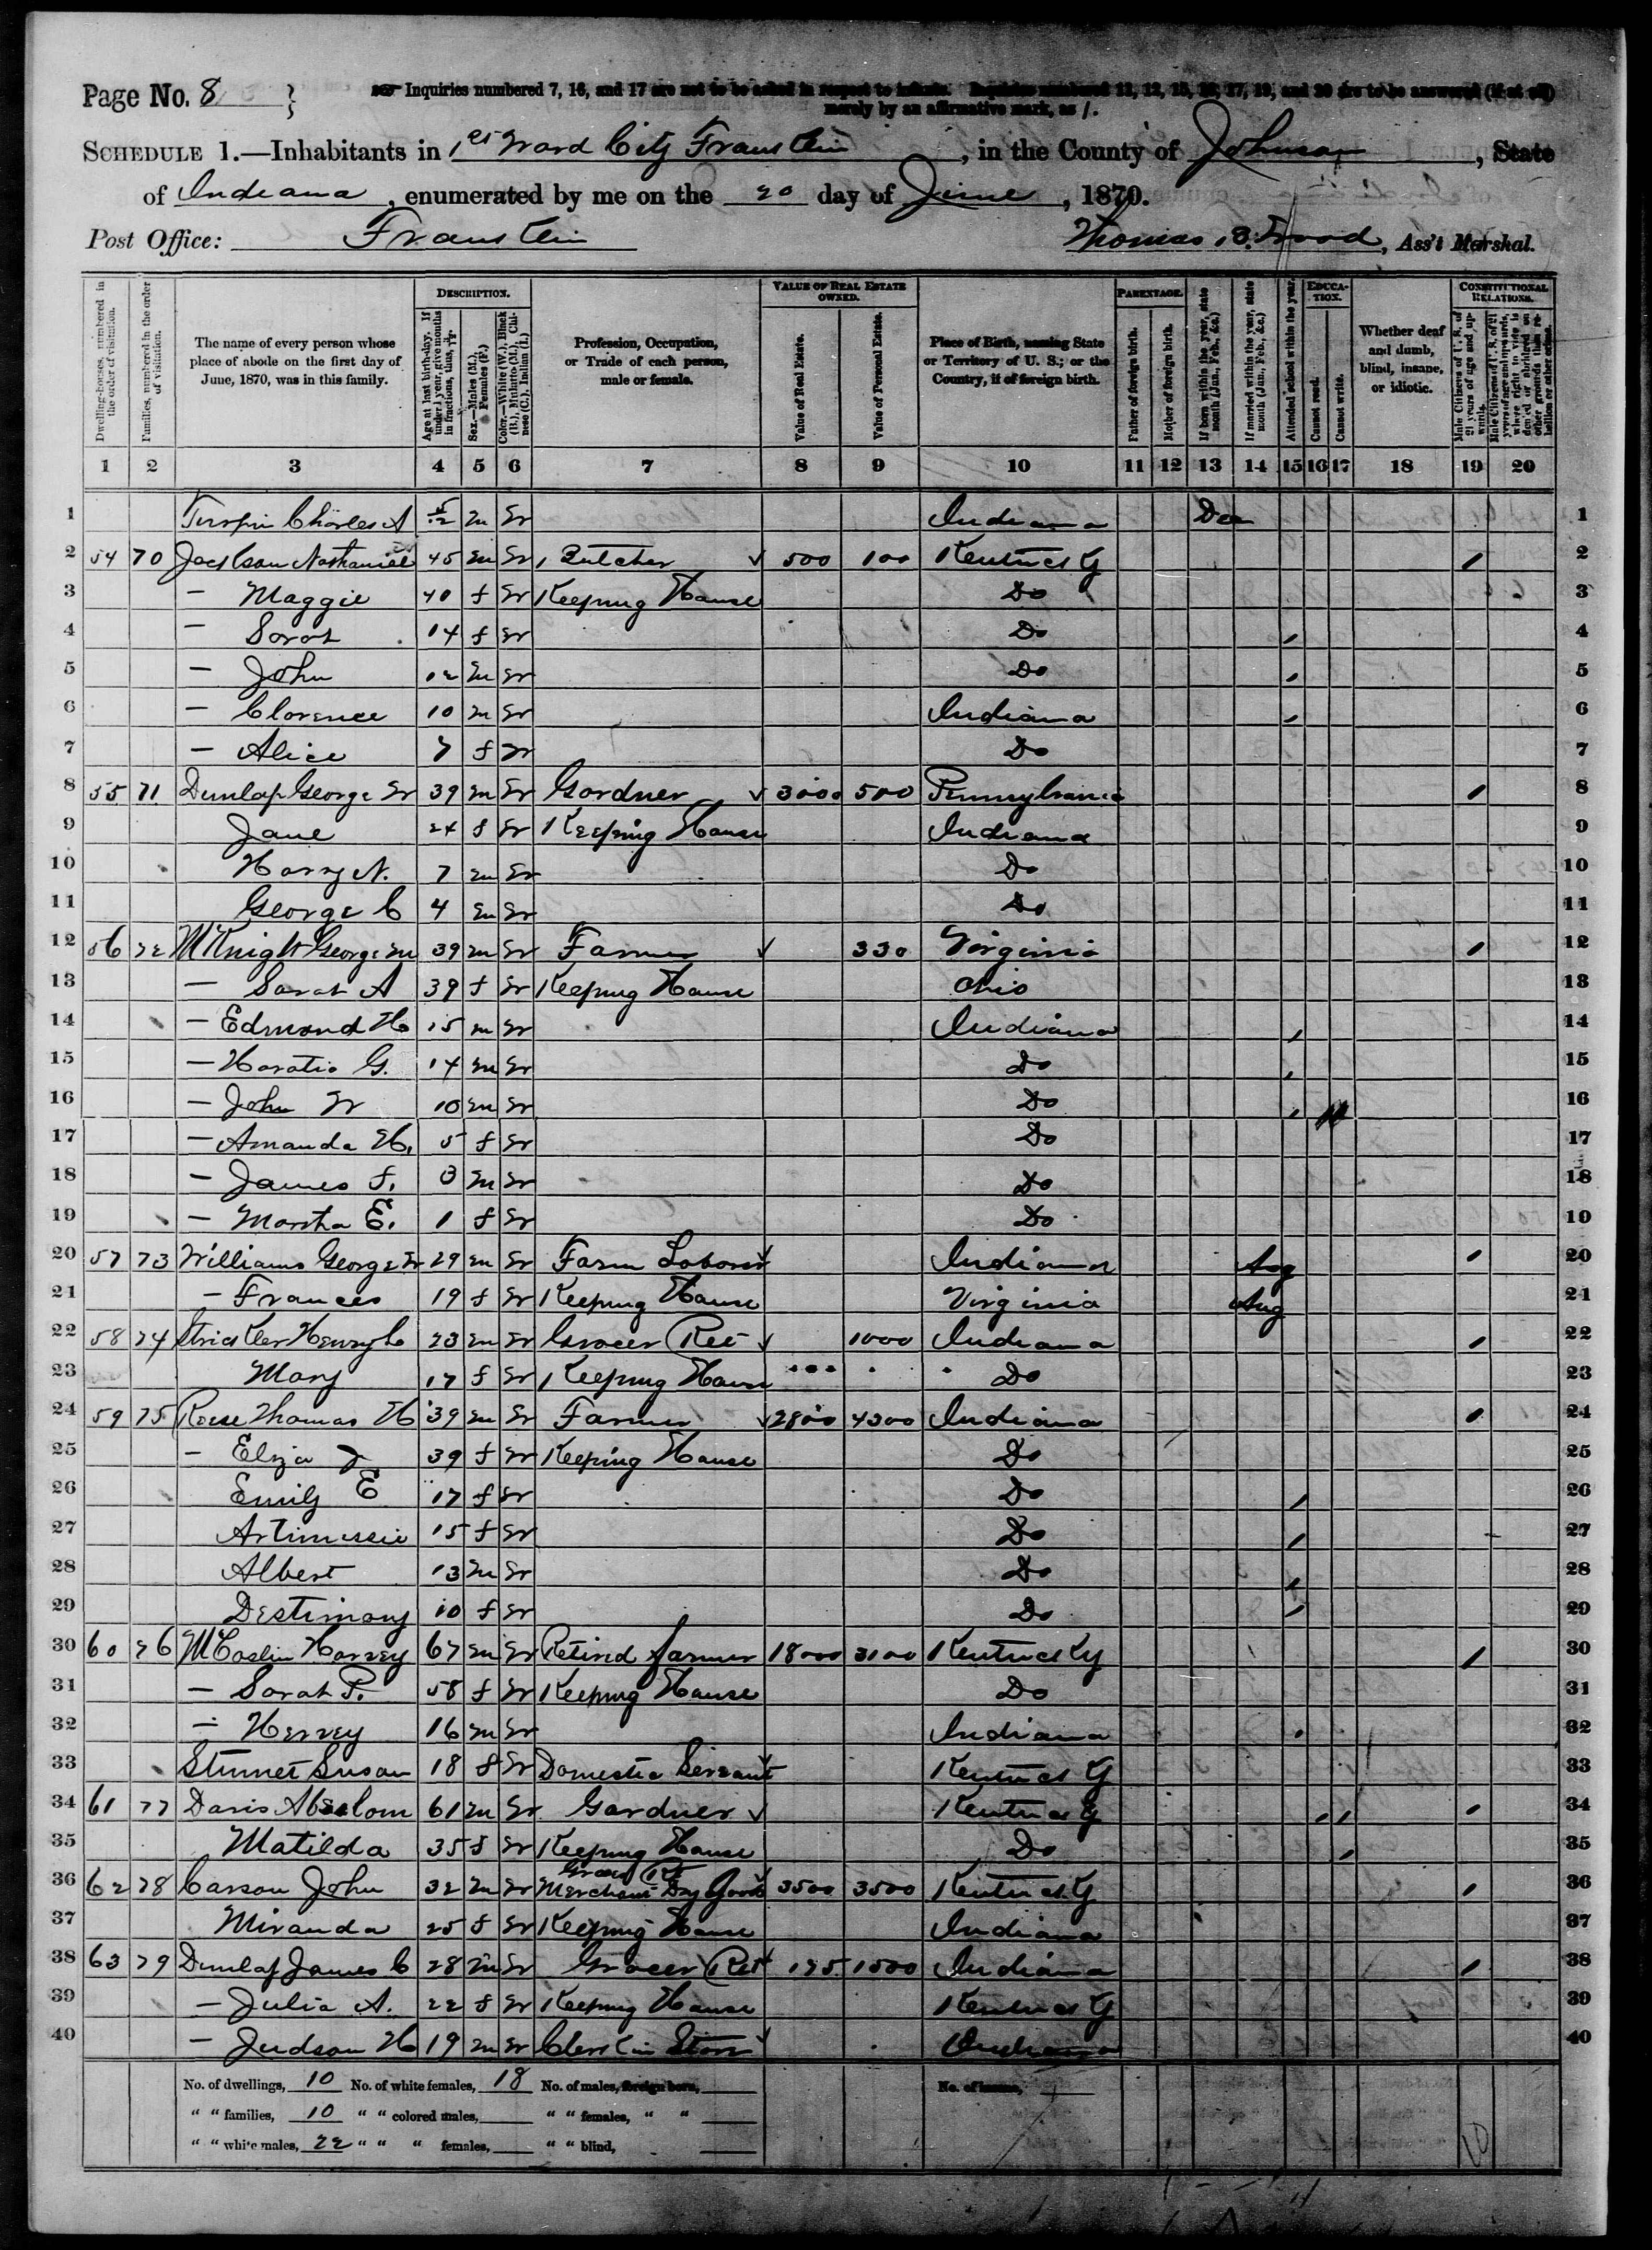 Page No. 8 }
Inquiries numbered 7, 16, and 17 are not to be asked in respect to infants. Inquiries numbered 11, 12, 15, 16, 17, 19, and 20 are to be answered (if at all) merely by an affirmative mark, as /.
SCHEDULE 1.—Inhabitants in 1st Ward City Franklin, in the County of Johnson, State
of Indiana, enumerated by me on the 20 day of June, 1870.
Post Office: Franklin Thomas B. Wood, Ass't Marshal.
Dwelling-houses, numbered in the order of visitation.
Families, numbered in the order of visitation.
The name of every person whose place of abode on the first day of June, 1870, was in this family.
DESCRIPTION.
Age at last birth-day. If under 1 year, give months in fractions, thus, 3/12.
Sex.—Males (M.), Females (F.)
Color.—White (W.), Black (B.), Mulatto (M.), Chinese (C.), Indian (I.)
Profession, Occupation, or Trade of each person, male or female.
VALUE OF REAL ESTATE OWNED.
Value of Real Estate.
Value of Personal Estate.
Place of Birth, naming State or Territory of U. S.; or the Country, if of foreign birth.
PARENTAGE.
Father of foreign birth.
Mother of foreign birth.
If born within the year, state month (Jan., Feb., &c.)
If married within the year, state month (Jan., Feb., &c.)
Attended school within the year.
EDUCATION.
Cannot read.
Cannot write.
Whether deaf and dumb, blind, insane, or idiotic.
CONSTITUTIONAL RELATIONS.
Male Citizens of U. S. of 21 years of age and upwards.
Male Citizens of U. S. of 21 years of age and upwards, where right to vote is denied or abridged on other grounds than rebellion or other crime.
1 2 3 4 5 6 7 8 9 10 11 12 13 14 15 16 17 18 19 20
1 Turpin Charles A 5/12 M W Indiana Dec 1
2 54 70 Jackson Nathaniel 45 M W Butcher 500 100 Kentucky / 2
3 — Maggie 40 f W Keeping House Do 3
4 — Sarah 14 f W Do / 4
5 — John 12 M W Do / 5
6 — Clarence 10 M W Indiana / 6
7 — Alice 7 f W Do 7
8 55 71 Dunlap George W 39 M W Gardner 3000 500 Pennsylvania / 8
9 Jane 24 f W Keeping House Indiana 9
10 Harry N. 7 M W Do 10
11 George C 4 M W Do 11
12 56 72 McKnight George M 39 M W Farmer 330 Virginia / 12
13 — Sarah A 39 f W Keeping House Ohio 13
14 — Edmond H 15 M W Indiana / 14
15 — Horatio G. 14 M W Do / 15
16 — John W 10 M W Do / 16
17 — Amanda H. 5 f W Do 17
18 — James S. 3 M W Do 18
19 — Martha E. 1 f W Do 19
20 57 73 Williams George W 29 M W Farm Laborer Indiana Aug / 20
21 — Frances 19 f W Keeping House Virginia Aug 21
22 58 74 Strickler Henry C 23 M W Grocer Ret 1000 Indiana / 22
23 Mary 17 f W Keeping House Do 23
24 59 75 Reese Thomas H 39 M W Farmer 2800 4300 Indiana / 24
25 — Eliza J 39 f W Keeping House Do 25
26 Emily E 17 f W Do / 26
27 Artimissie 15 f W Do / 27
28 Albert 13 M W Do / 28
29 Destimony 10 f W Do / 29
30 60 76 McCaslin Harvey 67 M W Retired farmer 18000 3100 Kentucky / 30
31 — Sarah P. 58 f W Keeping House Do 31
32 — Hervey 16 M W Indiana / 32
33 Stinnet Susan 18 f W Domestic Servant Kentucky 33
34 61 77 Davis Absalom 61 M W Gardner Kentucky / / / 34
35 Matilda 35 f W Keeping House Do / 35
36 62 78 Carson John 32 M W Merchant Dry Goods 3500 3500 Kentucky / 36
37 Miranda 25 f W Keeping House Indiana 37
38 63 79 Dunlap James C 28 M W Grocer Ret 175 1500 Indiana / 38
39 — Julia A. 22 f W Keeping House Kentucky 39
40 — Judson H 19 M W Clerk in Store Indiana 40
No. of dwellings, 10 No. of white females, 18 No. of males, foreign born, No. of insane,
" " families, 10 " " colored males, " " females, " "
" " white males, 22 " " " females, " " blind, 10